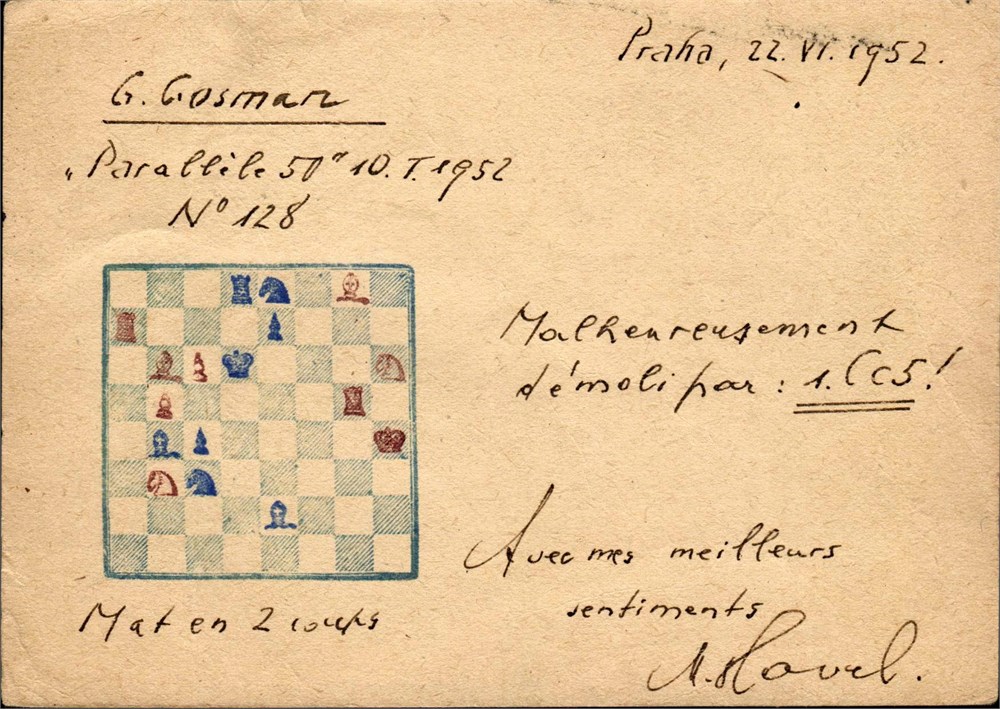 Praha, 22. VI. 1952.
G. Gosman
„Parallèle 50” 10. I. 1952
N° 128
Malheureusement
démoli par : 1. Cc5!
Mat en 2 coups
Avec mes meilleurs
sentiments
M. Havel.